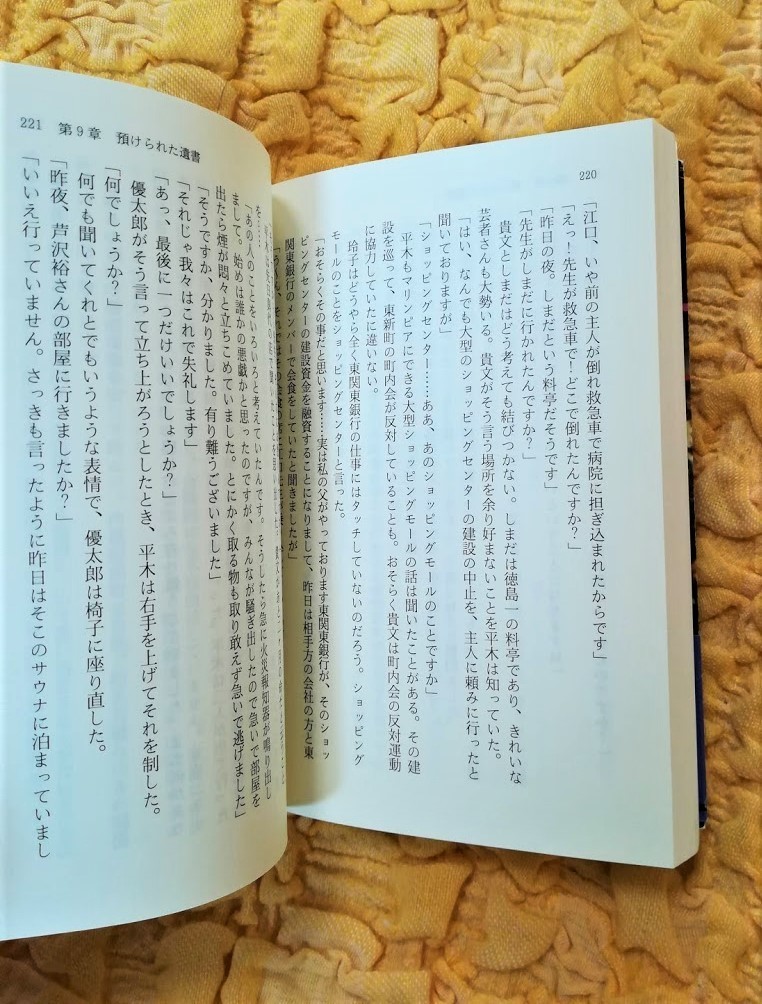 220
「江口、いや前の主人が倒れ救急車で病院に担ぎ込まれたからです」
「えっ！先生が救急車で！どこで倒れたんですか？」
「昨日の夜。しまだという料亭だそうです」
「先生がしまだに行かれたんですか？」
貴文としまだはどう考えても結びつかない。しまだは徳島一の料亭であり、きれいな
芸者さんも大勢いる。貴文がそう言う場所を余り好まないことを平木は知っていた。
「はい、なんでも大型のショッピングセンターの建設の中止を、主人に頼みに行ったと
聞いておりますが」
「ショッピングセンター……ああ、あのショッピングモールのことですか」
平木もマリンピアにできる大型ショッピングモールの話は聞いたことがある。その建
設を巡って、東新町の町内会が反対していることも。おそらく貴文は町内会の反対運動
に協力していたに違いない。
玲子はどうやら全く東関東銀行の仕事にはタッチしていないのだろう。ショッピング
モールのことをショッピングセンターと言った。
「おそらくその事だと思います……実は私の父がやっております東関東銀行が、そのショッ
ピングセンターの建設資金を融資することになりまして、昨日は相手方の会社の方と東
関東銀行のメンバーで会食をしていたと聞きましたが」
221 第9章 預けられた遺書
を……
「あの人のことをいろいろと考えていたんです。そうしたら急に火災報知器が鳴り出し
まして。始めは誰かの悪戯かと思ったのですが、みんなが騒ぎ出したので急いで部屋を
出たら煙が悶々と立ちこめていました。とにかく取る物も取り敢えず急いで逃げました」
「そうですか、分かりました。有り難うございました」
「それじゃ我々はこれで失礼します」
「あっ、最後に一つだけいいでしょうか？」
優太郎がそう言って立ち上がろうとしたとき、平木は右手を上げてそれを制した。
「何でしょうか？」
何でも聞いてくれとでもいうような表情で、優太郎は椅子に座り直した。
「昨夜、芦沢裕さんの部屋に行きましたか？」
「いいえ行っていません。さっきも言ったように昨日はそこのサウナに泊まっていまし